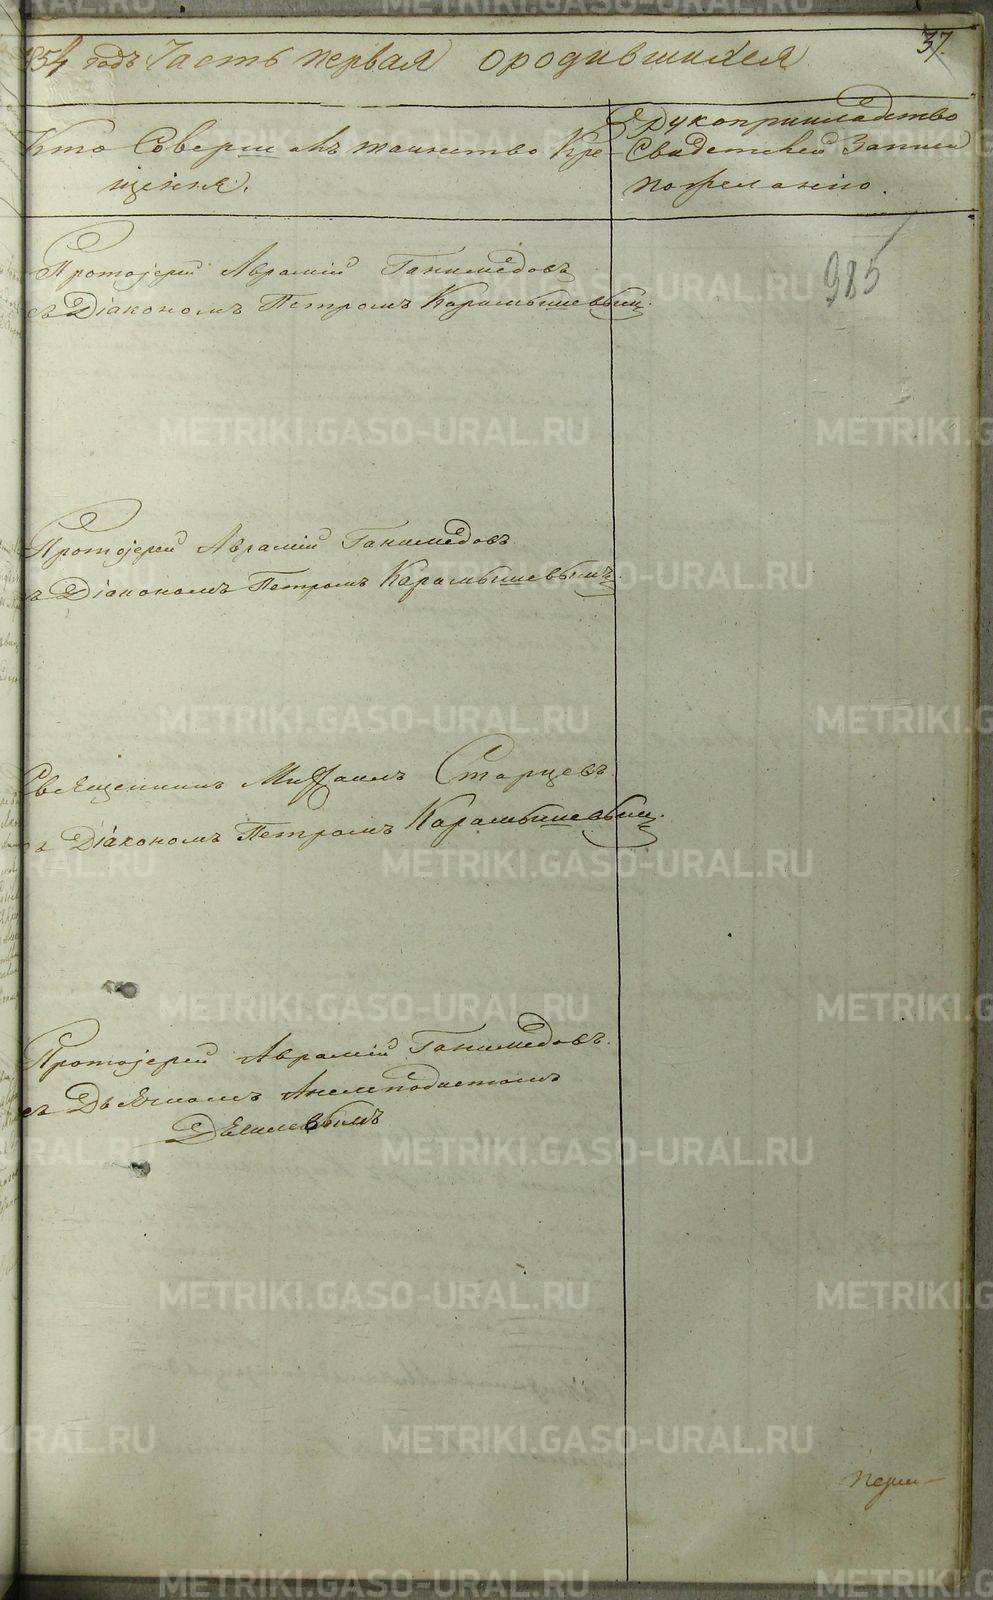 1854 годъ Часть первая о родившихся
37.
Кто Совершалъ таинство Кре-
щенія.
Рукоприкладство
Свидѣтелей Записи
по желанію.
985
Протоіерей Аврамій Ганимедовъ
съ Діакономъ Петромъ Карамышевымъ.
Протоіерей Аврамій Ганимедовъ
съ Діакономъ Петромъ Карамышевымъ.
Священникъ Михаилъ Старцевъ
съ Діакономъ Петромъ Карамышевымъ.
Протоіерей Аврамій Ганимедовъ.
съ Дьячкомъ Анемподистомъ
METRIKI.GASO-URAL.RU